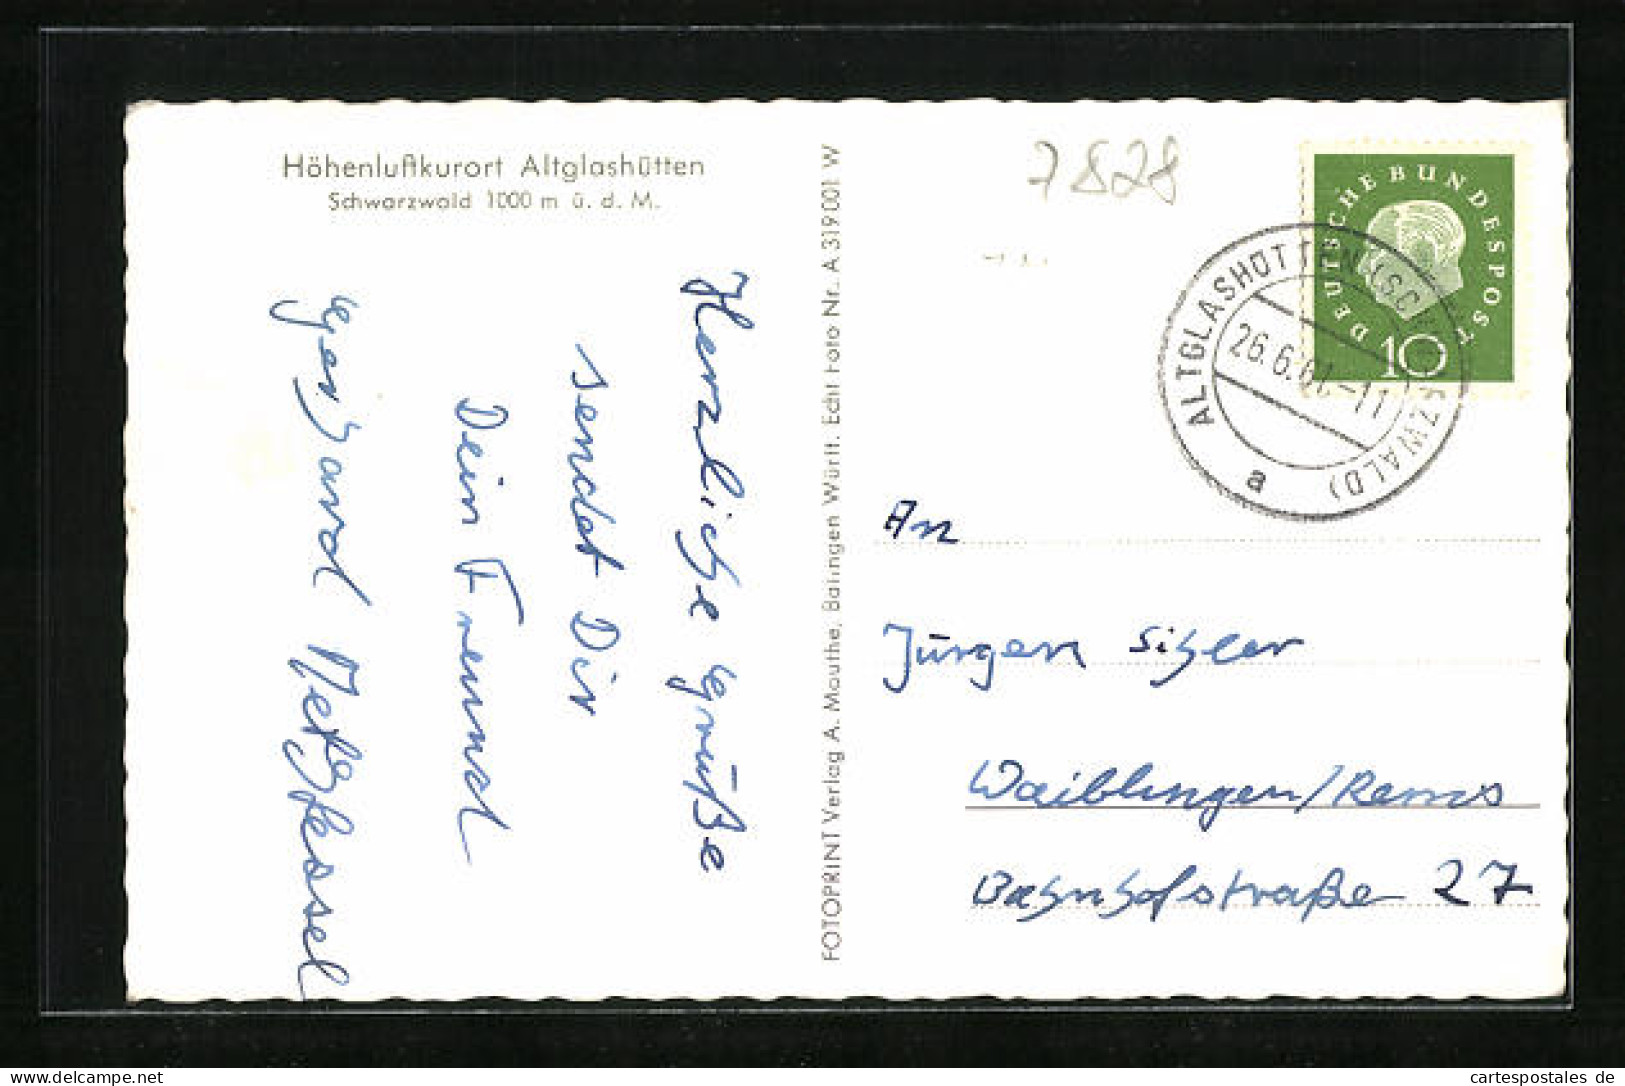 Höhenluftkurort Altglashütten
Schwarzwald 1000 m ü. d. M.
Herzliche Grüße
sendet Dir
Dein Freund
Gerhard
FOTOPRINT Verlag A. Mauthe, Balingen Württ. Echt Foto Nr. A 319001 W
7828
DEUTSCHE BUNDESPOST
10
ALTGLASHÜTTEN (SCHWARZWALD)
26.6.61-11
a
An
Jürgen
Waiblingen/Rems
Bahnhofstraße 27
Delcampe.net
cartespostales de